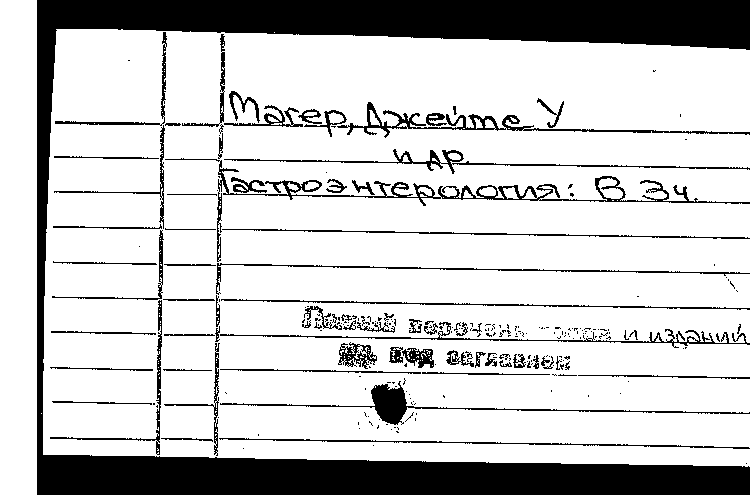 Магер, Джеймс У
и др.
Гастроэнтерология: В 3ч.
Полный перечень томов и изданий
см. под заглавием